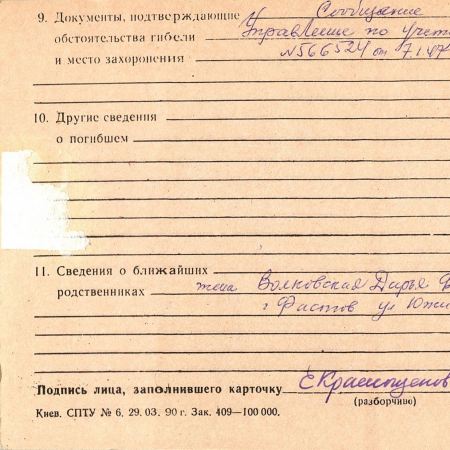 9. Документы, подтверждающие Сообщение
обстоятельства гибели Управление по учет
и место захоронения N566524 от 7.1.47
10. Другие сведения
о погибшем
11. Сведения о ближайших
родственниках жена Волковская Дарья
г Фастов ул Южн
Подпись лица, заполнившего карточку
(разборчиво)
Киев. СПТУ № 6. 29. 03. 90 г. Зак. 409—100 000.